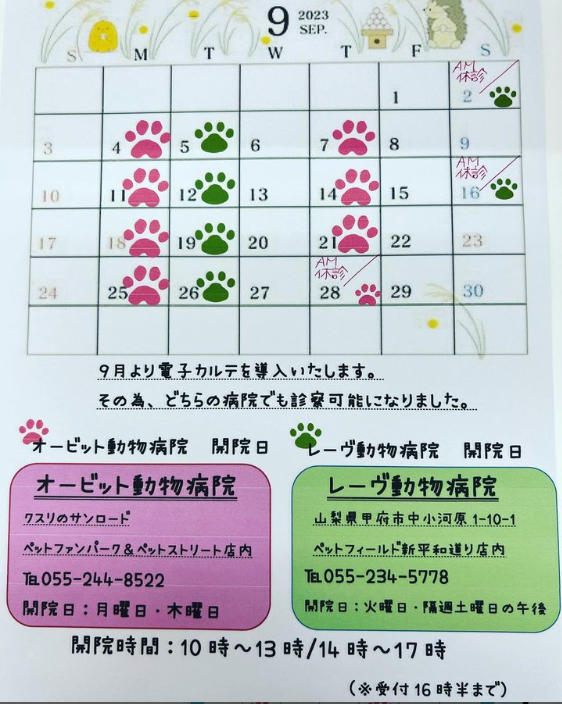 9 2023 SEP.
S M T W T F S
1 AM休診 2
3 4 5 6 7 8 9
10 11 12 13 14 15 AM休診 16
17 18 19 20 21 22 23
24 25 26 27 AM休診 28 29 30
9月より電子カルテを導入いたします。
その為、どちらの病院でも診察可能になりました。
オービット動物病院 開院日 レーヴ動物病院 開院日
オービット動物病院
クスリのサンロード
ペットファンパーク&ペットストリート店内
℡055-244-8522
開院日:月曜日・木曜日
レーヴ動物病院
山梨県甲府市中小河原1-10-1
ペットフィールド新平和道り店内
℡055-234-5778
開院日:火曜日・隔週土曜日の午後
開院時間:10時~13時/14時~17時
(※受付16時半まで)